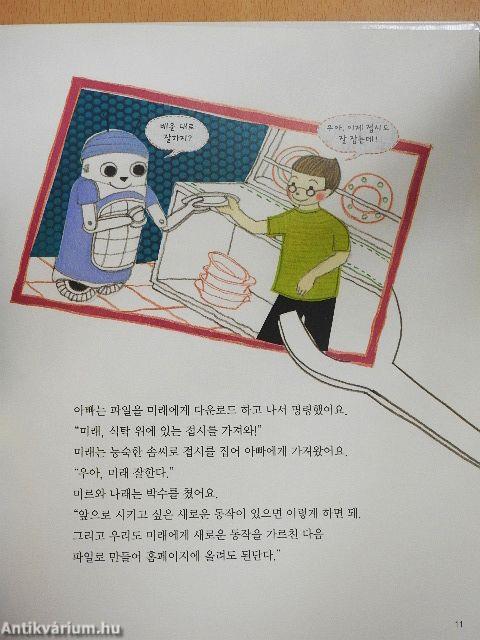 배운 대로
잘하지?
우아, 이제 접시도
잘 잡는데!
아빠는 파일을 미래에게 다운로드 하고 나서 명령했어요.
“미래, 식탁 위에 있는 접시를 가져와!”
미래는 능숙한 솜씨로 접시를 집어 아빠에게 가져왔어요.
“우아, 미래 잘한다.”
미르와 나래는 박수를 쳤어요.
“앞으로 시키고 싶은 새로운 동작이 있으면 이렇게 하면 돼.
그리고 우리도 미래에게 새로운 동작을 가르친 다음
파일로 만들어 홈페이지에 올려도 된단다.”
11
Antikvárium.hu